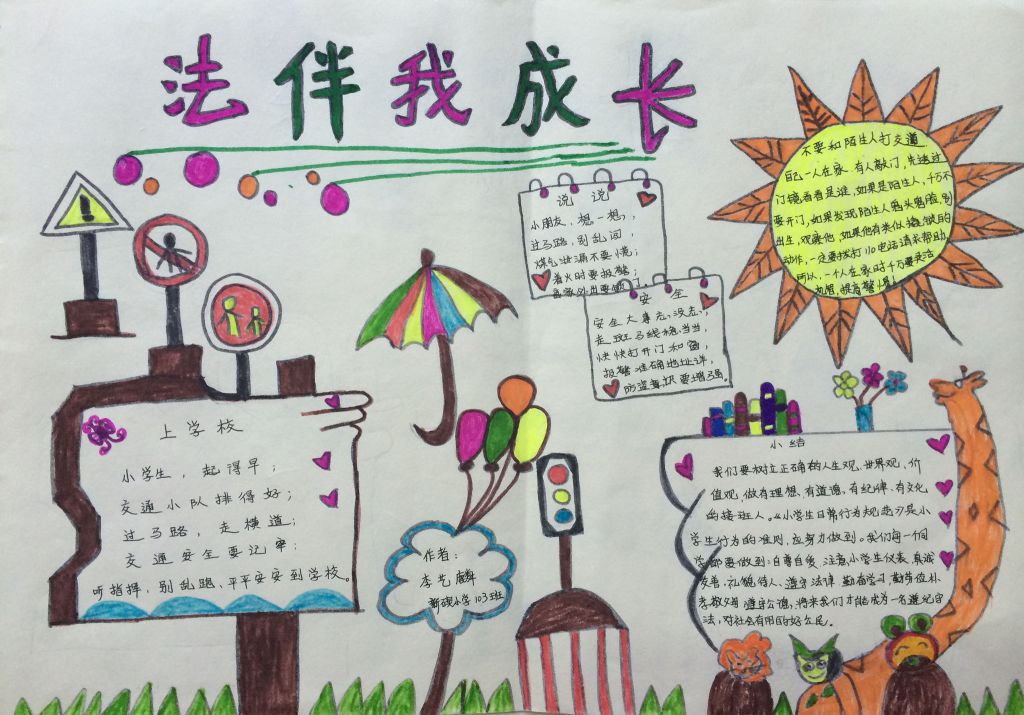 法伴我成长
不要和陌生人打交道
自己一人在家，有人敲门，先透过
门镜看看是谁，如果是陌生人，千万不
要开门，如果发现陌生人鬼头鬼脑，别
出生，观察他，如果他有类似撬锁的
动作，一定要拨打110电话请求帮助
所以，一个人在家时千万要灵活
机智，提高警惕！
说说
小朋友，想一想，
过马路，别乱闯，
煤气泄漏不要慌；
着火时要报警
安全
安全大事
走斑马线稳当当，
快快打开门和窗，
报警准确地址详，
防盗意识要增强。
上学校
小学生，起得早；
交通小队排得好；
过马路，走横道；
交通安全要记牢；
听指挥，别乱跑，平平安安到学校。
作者：
李艺麟
新砚小学103班
小结
我们要树立正确的人生观、世界观、价
值观，做有理想、有道德、有纪律、有文化
的接班人。《小学生日常行为规范》是小
学生行为的准则，应努力做到。我们每一个同
学都要做到：自尊自爱 注意小学生仪表，真诚
友善，礼貌待人、遵守法律 勤奋学习 勤劳俭朴
孝敬父母 遵守公德，将来我们才能成为一名遵纪守
法，对社会有用的好公民。